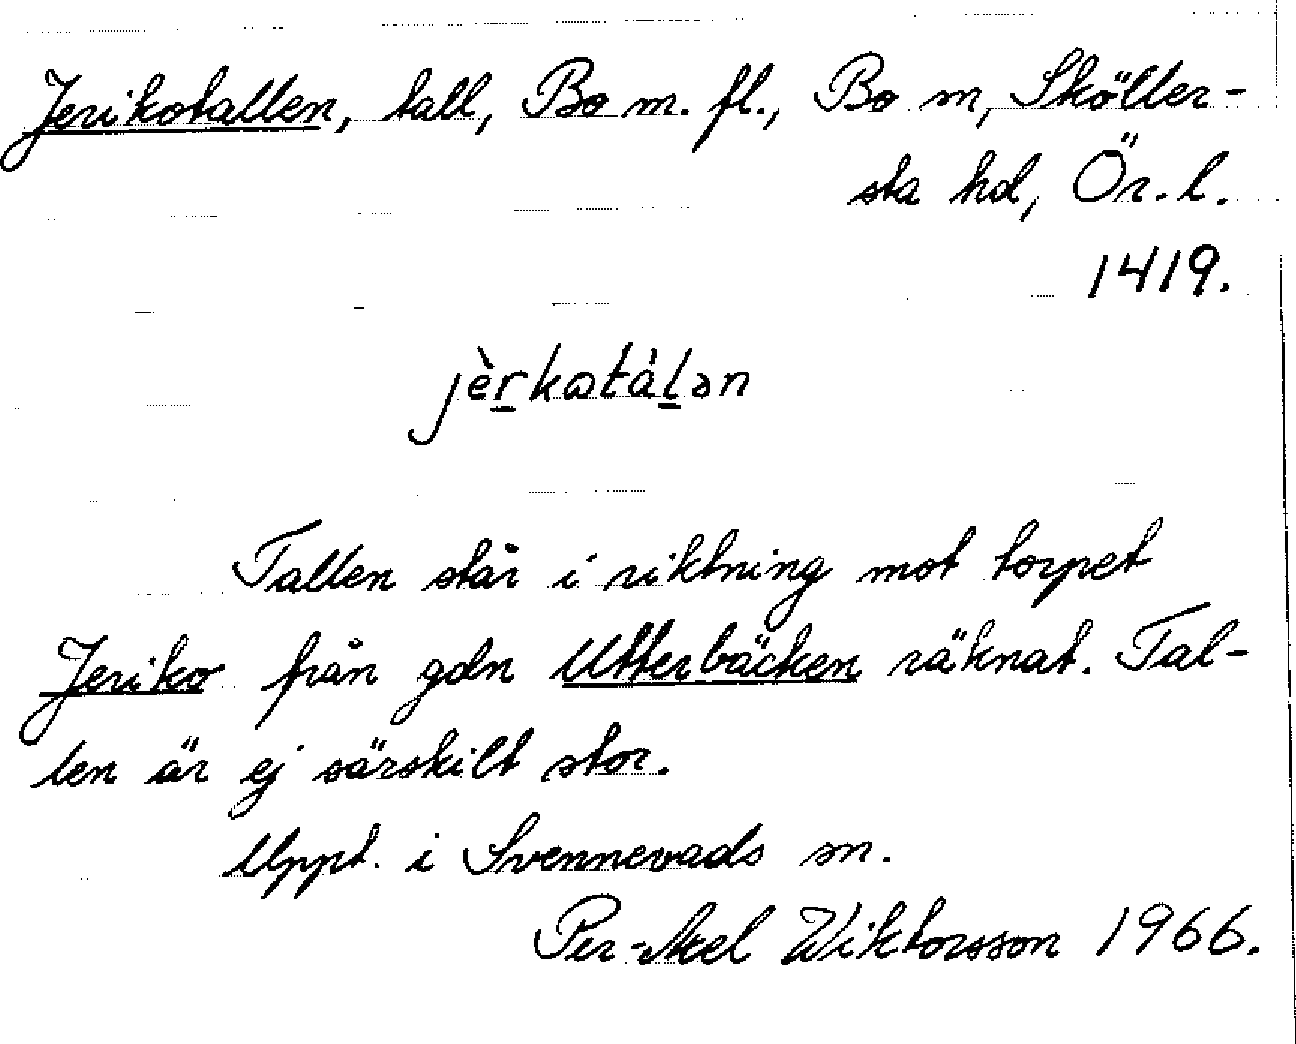 Jerikotallen, tall, Bo m. fl., Bo sn, Sköller-
sta hd, Ör. l.
1419.
jèrkatálən
Tallen står i riktning mot torpet
Jeriko från gdn Utterbäcken räknat. Tal-
len är ej särskilt stor.
Uppt. i Svennevads sn.
Per-Axel Wiktorsson 1966.